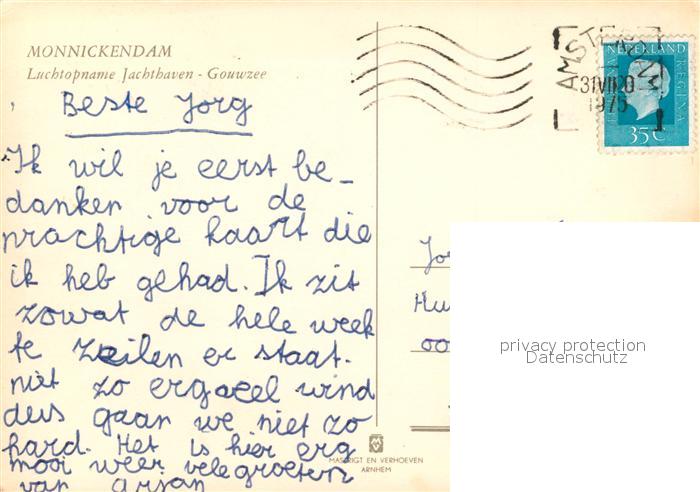 MONNICKENDAM
Luchtopname Jachthaven - Gouwzee
Beste Jorg
Ik wil je eerst be-
danken voor de
prachtige kaart die
ik heb gehad. Ik zit
zowat de hele week
te zeilen er staat.
niet zo ergveel wind
dus gaan we niet zo
hard. Het is hier erg
mooi weer vele groeten
van arjan
AMSTERDAM
31 VII 20
1975
NEDERLAND
REGINA
35 C
Jo
Hu
oo
privacy protection
Datenschutz
MASTRIGT EN VERHOEVEN
ARNHEM